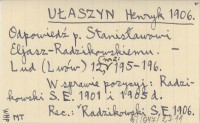 UŁASZYN Henryk 1906.
Odpowiedź p. Stanisławowi
Eljasz-Radzikowskiemu. —
Lud (Lwów) 12, 195-196.
W sprawie pozycji: Radzi-
kowski S.E. 1901 i 1905 d.
Rec.: Radzikowski S.E. 1906.
MT